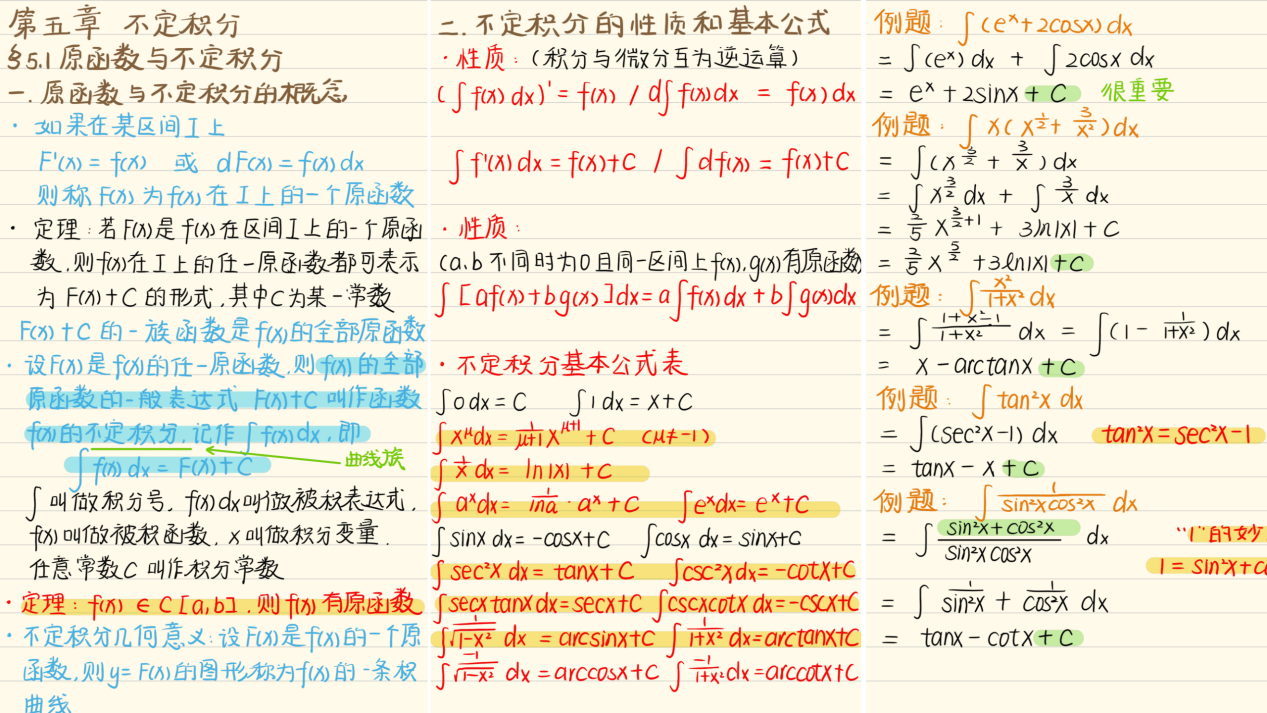 第五章 不定积分
§5.1 原函数与不定积分
一.原函数与不定积分的概念
· 如果在某区间I上
F'(x) = f(x) 或 dF(x) = f(x)dx
则称F(x)为f(x)在I上的一个原函数
· 定理:若F(x)是f(x)在区间I上的一个原函
数,则f(x)在I上的任一原函数都可表示
为 F(x)+C 的形式,其中C为某一常数
F(x)+C 的一族函数是f(x)的全部原函数
· 设F(x)是f(x)的任一原函数,则f(x)的全部
原函数的一般表达式 F(x)+C 叫作函数
f(x)的不定积分,记作∫f(x)dx,即
∫f(x)dx = F(x)+C 曲线族
∫叫做积分号,f(x)dx叫做被积表达式,
f(x)叫做被积函数,x叫做积分变量.
任意常数C 叫作积分常数
· 定理:f(x) ∈ C[a,b],则f(x)有原函数
· 不定积分几何意义:设F(x)是f(x)的一个原
函数,则y=F(x)的图形称为f(x)的一条积
曲线
二.不定积分的性质和基本公式
· 性质:(积分与微分互为逆运算)
(∫f(x)dx)' = f(x) / d∫f(x)dx = f(x)dx
∫f'(x)dx = f(x)+C / ∫df(x) = f(x)+C
· 性质:
(a.b 不同时为0且同一区间上f(x),g(x)有原函数
∫[af(x)+bg(x)]dx=a∫f(x)dx+b∫g(x)dx
· 不定积分基本公式表
∫0dx=C ∫1dx=x+C
∫x^μdx=1/(μ+1) x^(μ+1)+C (μ≠-1)
∫1/x dx= ln|x|+C
∫a^xdx= 1/lna · a^x+C ∫e^xdx= e^x+C
∫sinx dx=-cosx+C ∫cosx dx=sinx+C
∫sec²x dx=tanx+C ∫csc²xdx=-cotx+C
∫secxtanxdx=secx+C ∫cscxcotx dx=-cscx+C
∫1/√(1-x²) dx =arcsinx+C ∫1/(1+x²) dx=arctanx+C
∫-1/√(1-x²) dx=arccosx+C ∫-1/(1+x²) dx=arccotx+C
例题:∫(e^x+2cosx)dx
= ∫(e^x)dx + ∫2cosx dx
= e^x+2sinx+C 很重要
例题:∫x(x^(1/2)+3/x²)dx
= ∫(x^(3/2)+3/x)dx
= ∫x^(3/2)dx + ∫3/x dx
= 2/5 x^(3/2+1) + 3ln|x|+C
= 2/5 x^(5/2)+3ln|x|+C
例题:∫x²/(1+x²)dx
= ∫(1+x²-1)/(1+x²) dx = ∫(1-1/(1+x²))dx
= x-arctanx+C
例题:∫tan²x dx
= ∫(sec²x-1) dx tan²x=sec²x-1
= tanx-x+C
例题:∫1/(sin²xcos²x) dx
= ∫(sin²x+cos²x)/(sin²xcos²x) dx "1"的妙
1=sin²x+co
= ∫1/sin²x + 1/cos²x dx
= tanx-cotx+C